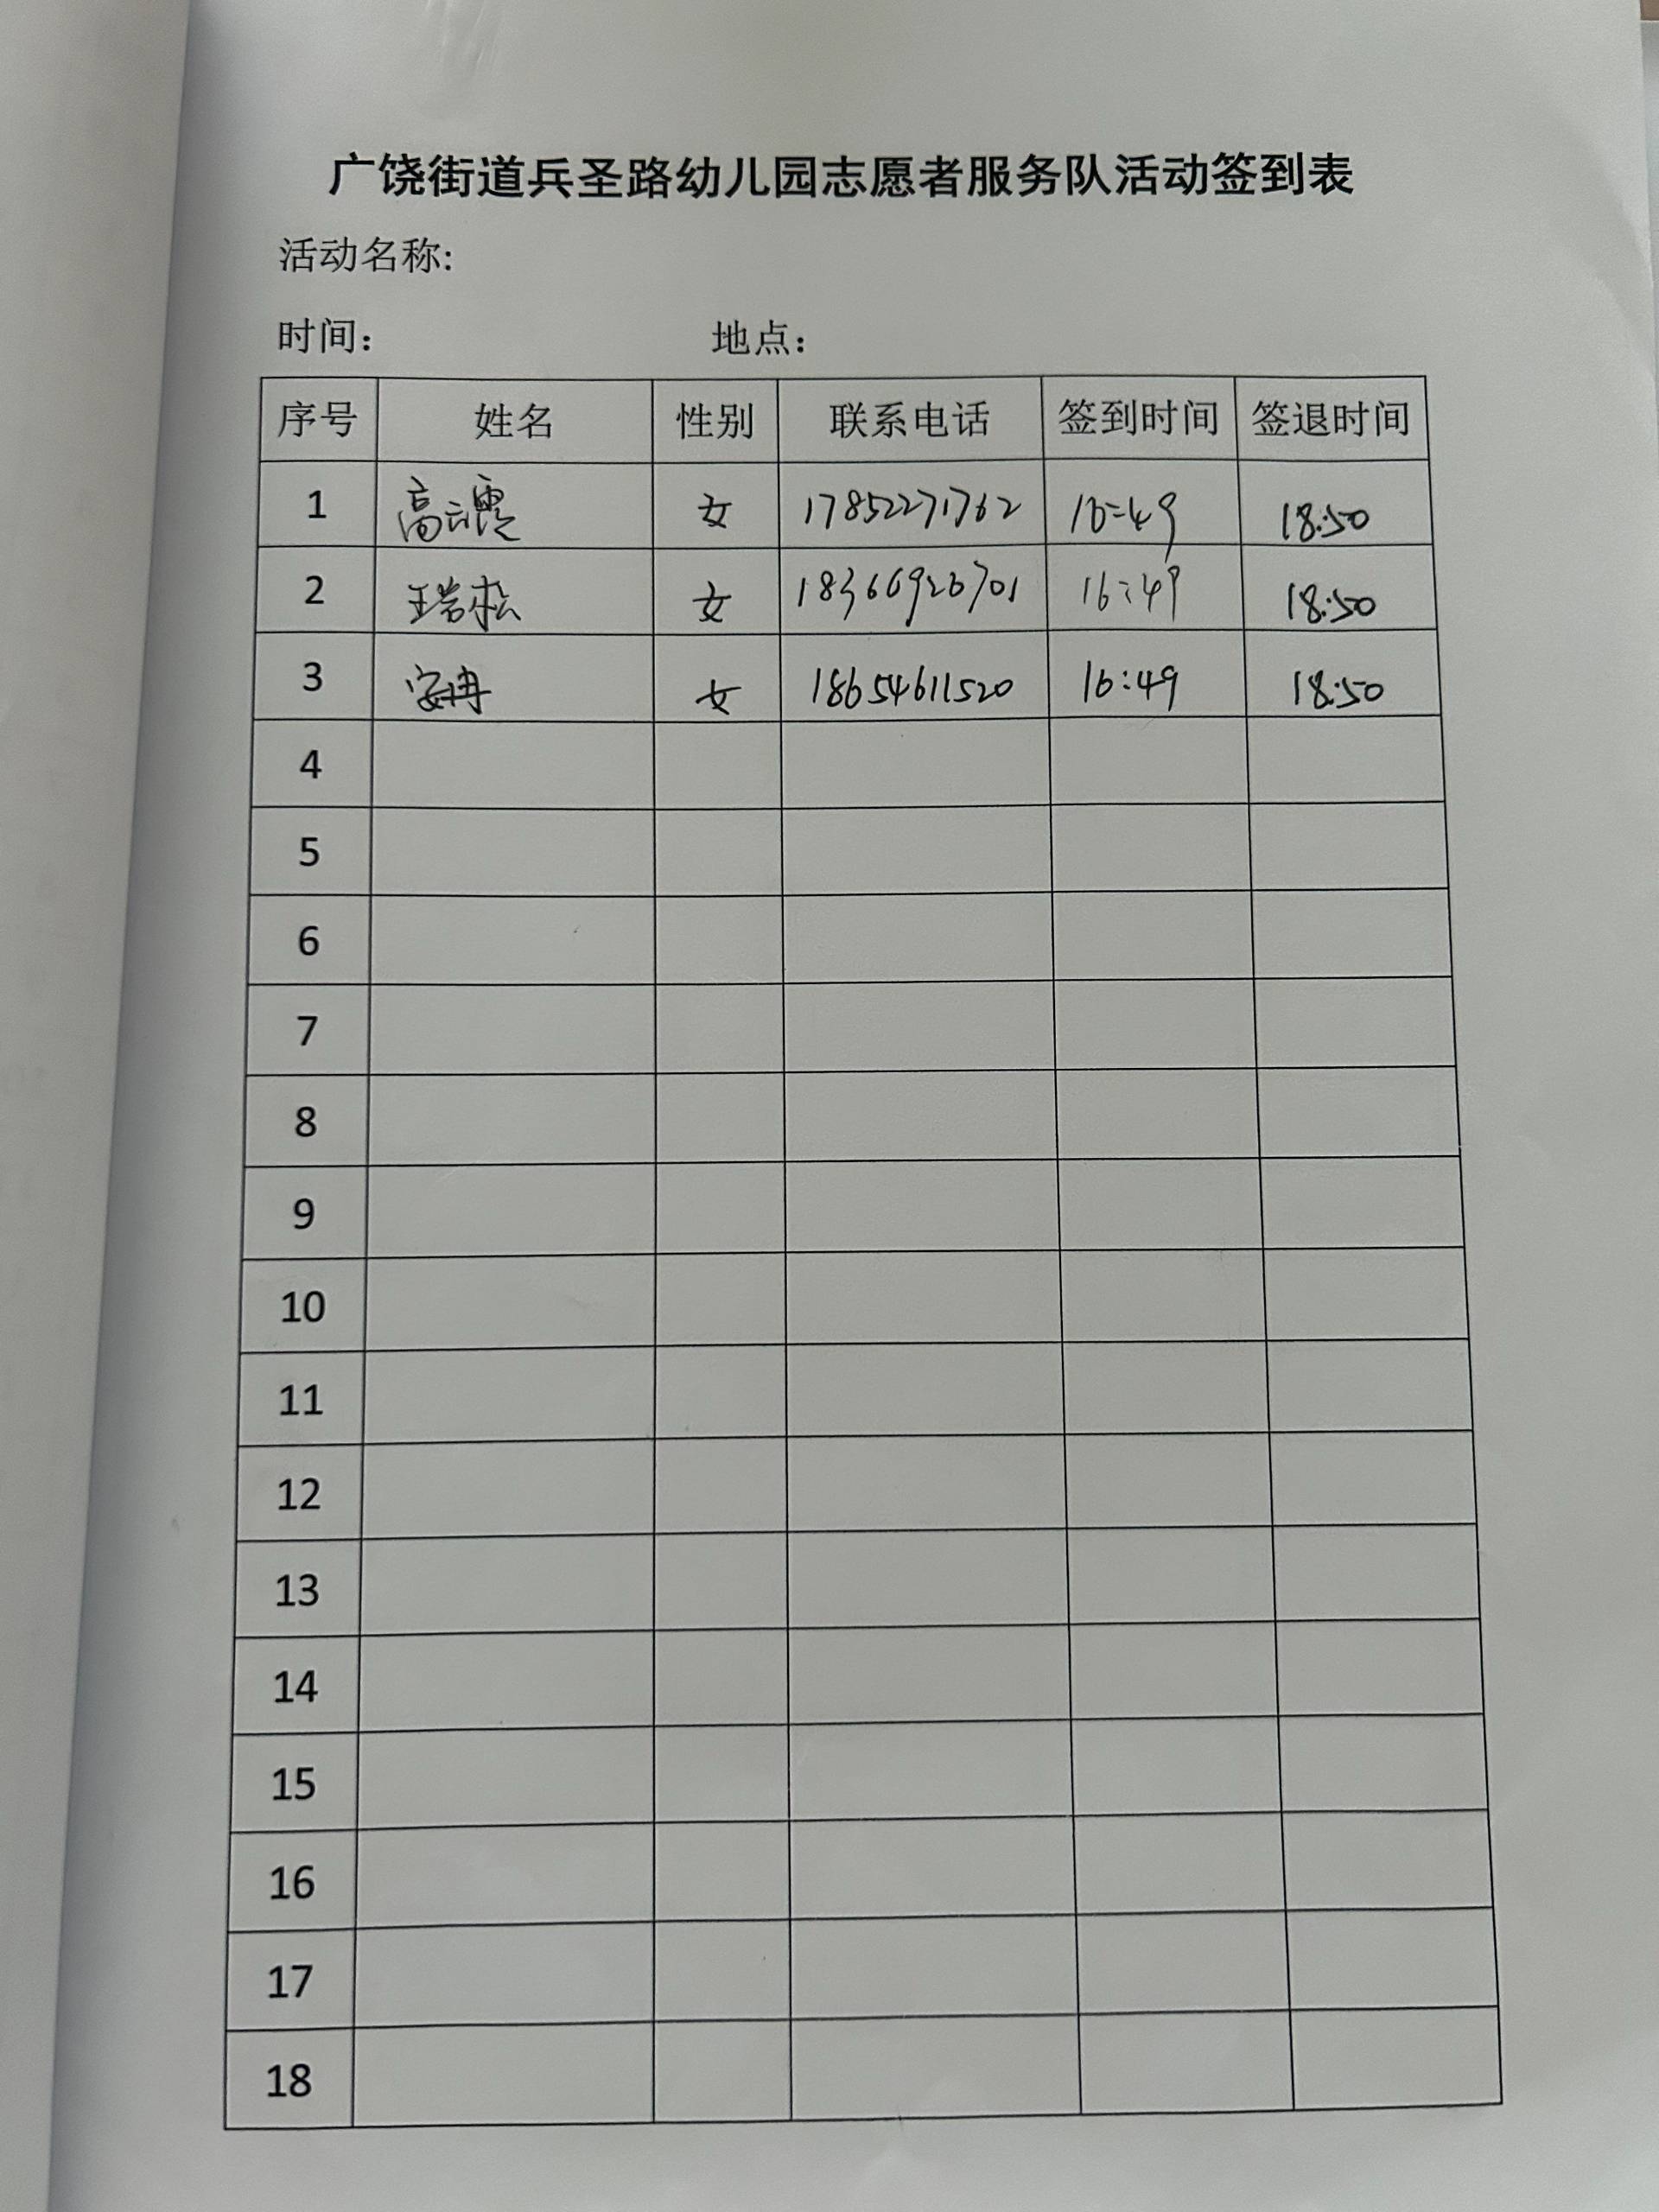 广饶街道兵圣路幼儿园志愿者服务队活动签到表
活动名称:
时间: 地点:
序号 姓名 性别 联系电话 签到时间 签退时间
1 高云霞 女 17852271762 16:49 18:50
2 王瑞松 女 18366926701 16:49 18:50
3 安冉 女 18654611520 16:49 18:50
4
5
6
7
8
9
10
11
12
13
14
15
16
17
18